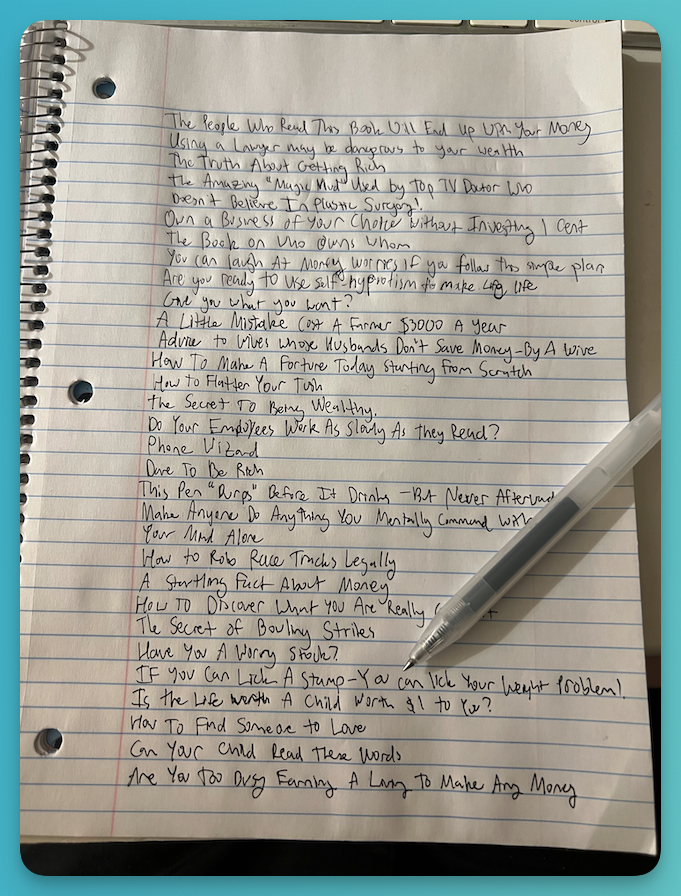 control
The People Who Read This Book Will End Up With Your Money
Using a Lawyer may be dangerous to your wealth
The Truth About Getting Rich
The Amazing "Magic Mud" Used by Top TV Doctor Who
Doesn't Believe In Plastic Surgery!
Own a Business of Your Choice Without Investing 1 Cent
The Book on Who Owns Whom
You can laugh At Money Worries if you follow this simple plan
Are you ready to use self-hypnotism to make life
Give you what you want?
A Little Mistake Cost A Farmer $3000 A Year
Advice to Wives whose Husbands Don't Save Money-By A Wive
How To Make A Fortune Today Starting From Scratch
How to Flatten Your Tush
The Secret To Being Wealthy.
Do Your Employees Work As Slowly As They Read?
Phone Wizard
Dare To Be Rich
This Pen "Burps" Before It Drinks - But Never
Make Anyone Do Anything You Mentally Command With
Your Mind Alone
How to Rob Race Tracks Legally
A Startling Fact About Money
How To Discover What You Are Really
The Secret of Bowling Strikes
Have You A Worry Stock?
If You Can Lick A Stamp-You can lick Your Weight Problem!
Is the Life A Child Worth $1 to You?
How To Find Someone to Love
Can Your Child Read These Words
Are You Too Busy Earning A Living To Make Any Money